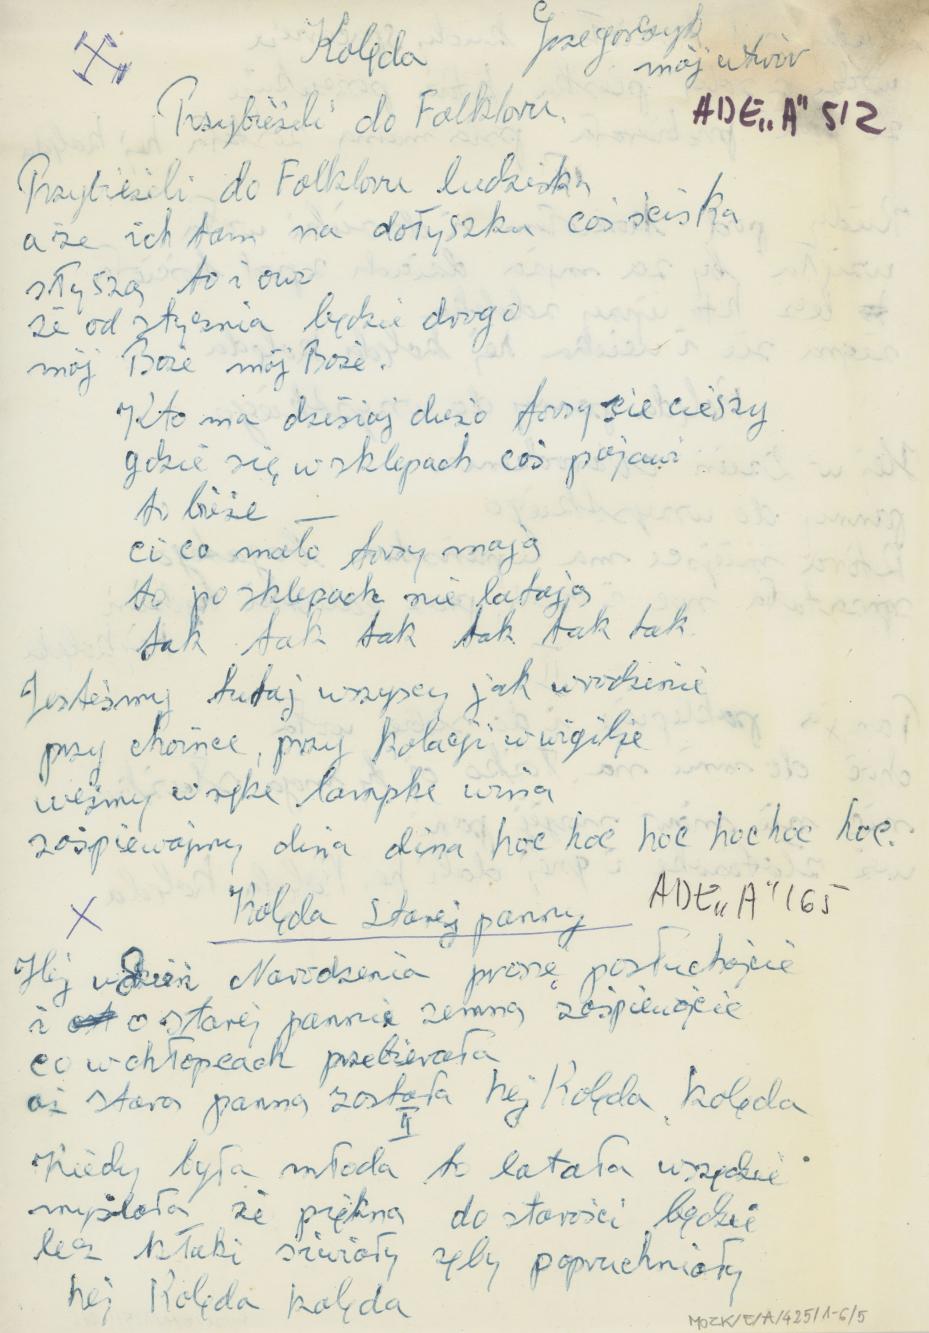 Kolęda Grzegorczyk
mój utwór
Przybieżeli do Folkloru. ADE „A" 512
Przybieżeli do Folkloru ludziska
a że ich tam na dołyszku coś ściska
słyszą to i owo
że od stycznia będzie drogo
mój Boże mój Boże.
Kto ma dzisiaj dużo forsy sie cieszy
gdzie się w sklepach coś pojawi
to bieże —
ci co mało forsy mają
to po sklepach nie latają
tak tak tak tak tak tak
Jesteśmy tutaj wszyscy jak w rodzinie
przy choince, przy kolacji w wigilje
weźmy w rękę lampke wina
zaśpiewajmy dina dina hoc hoc hoc hoc hoc hoc.
X Kolęda starej panny ADE „A" 165
Hej w dzień Narodzenia proszę posłuchajcie
i o starej pannie zemną zaśpiewajcie
co w chłopcach przebierała
aż starą panną została hej Kolęda, kolęda
II
Kiedy była młoda to latała wszędzie
myślała że piękną do starości będzie
lecz kłaki siwiały zęby popruchniały
hej Kolęda kolęda
MOZK/E/A/425/1-6/5